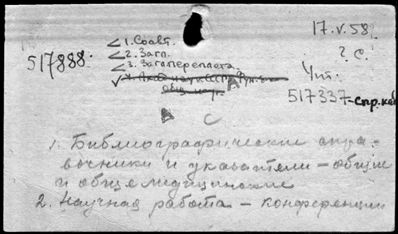 17.V.58.
∠ 1. Соавт.
∠ 2. Загл.
∠ 3. Заг. переплета.
? С.
517888.
Чит.
517337-спр.каб
А
А
С
1. Библиографические спра-
вочники и указатели - общие
и общемедицинские
2. Научная работа - конференции